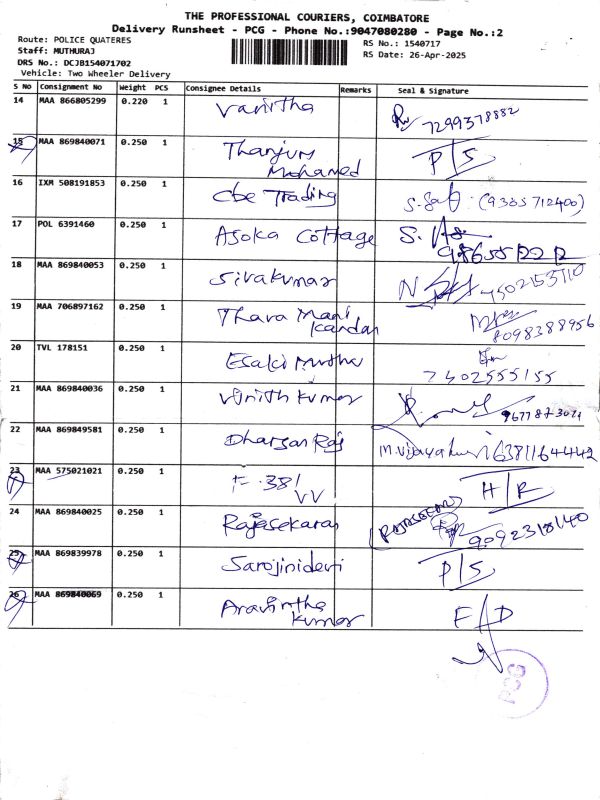 THE PROFESSIONAL COURIERS, COIMBATORE
Delivery Runsheet - PCG - Phone No.:9047080280 - Page No.:2
Route: POLICE QUATERES
RS No.: 1540717
Staff: MUTHURAJ
RS Date: 26-Apr-2025
DRS No.: DCJB154071702
Vehicle: Two Wheeler Delivery
S No Consignment No Weight PCS Consignee Details Remarks Seal & Signature
14 MAA 866805299 0.220 1 Vanitha 7299378882
15 MAA 869840071 0.250 1 Thanjum Mohamed P/S
16 IXM 508191853 0.250 1 Cbe Trading (9385712400)
17 POL 6391460 0.250 1 Asoka Cottage
18 MAA 869840053 0.250 1 Sivakumar
19 MAA 706897162 0.250 1 Thara Mani kandan 8098388956
20 TVL 178151 0.250 1 Esaki Muthu 7402555155
21 MAA 869840036 0.250 1 Vinith Kumar
22 MAA 869849581 0.250 1 Dharsan Raj 6381164442
23 MAA 575021021 0.250 1 F.381 VV H/R
24 MAA 869840025 0.250 1 Rajasekaran RAJASEKARAN 9092318140
25 MAA 869839978 0.250 1 Sarojinidevi P/S
26 MAA 869840069 0.250 1 Aravintha Kumar
PCG